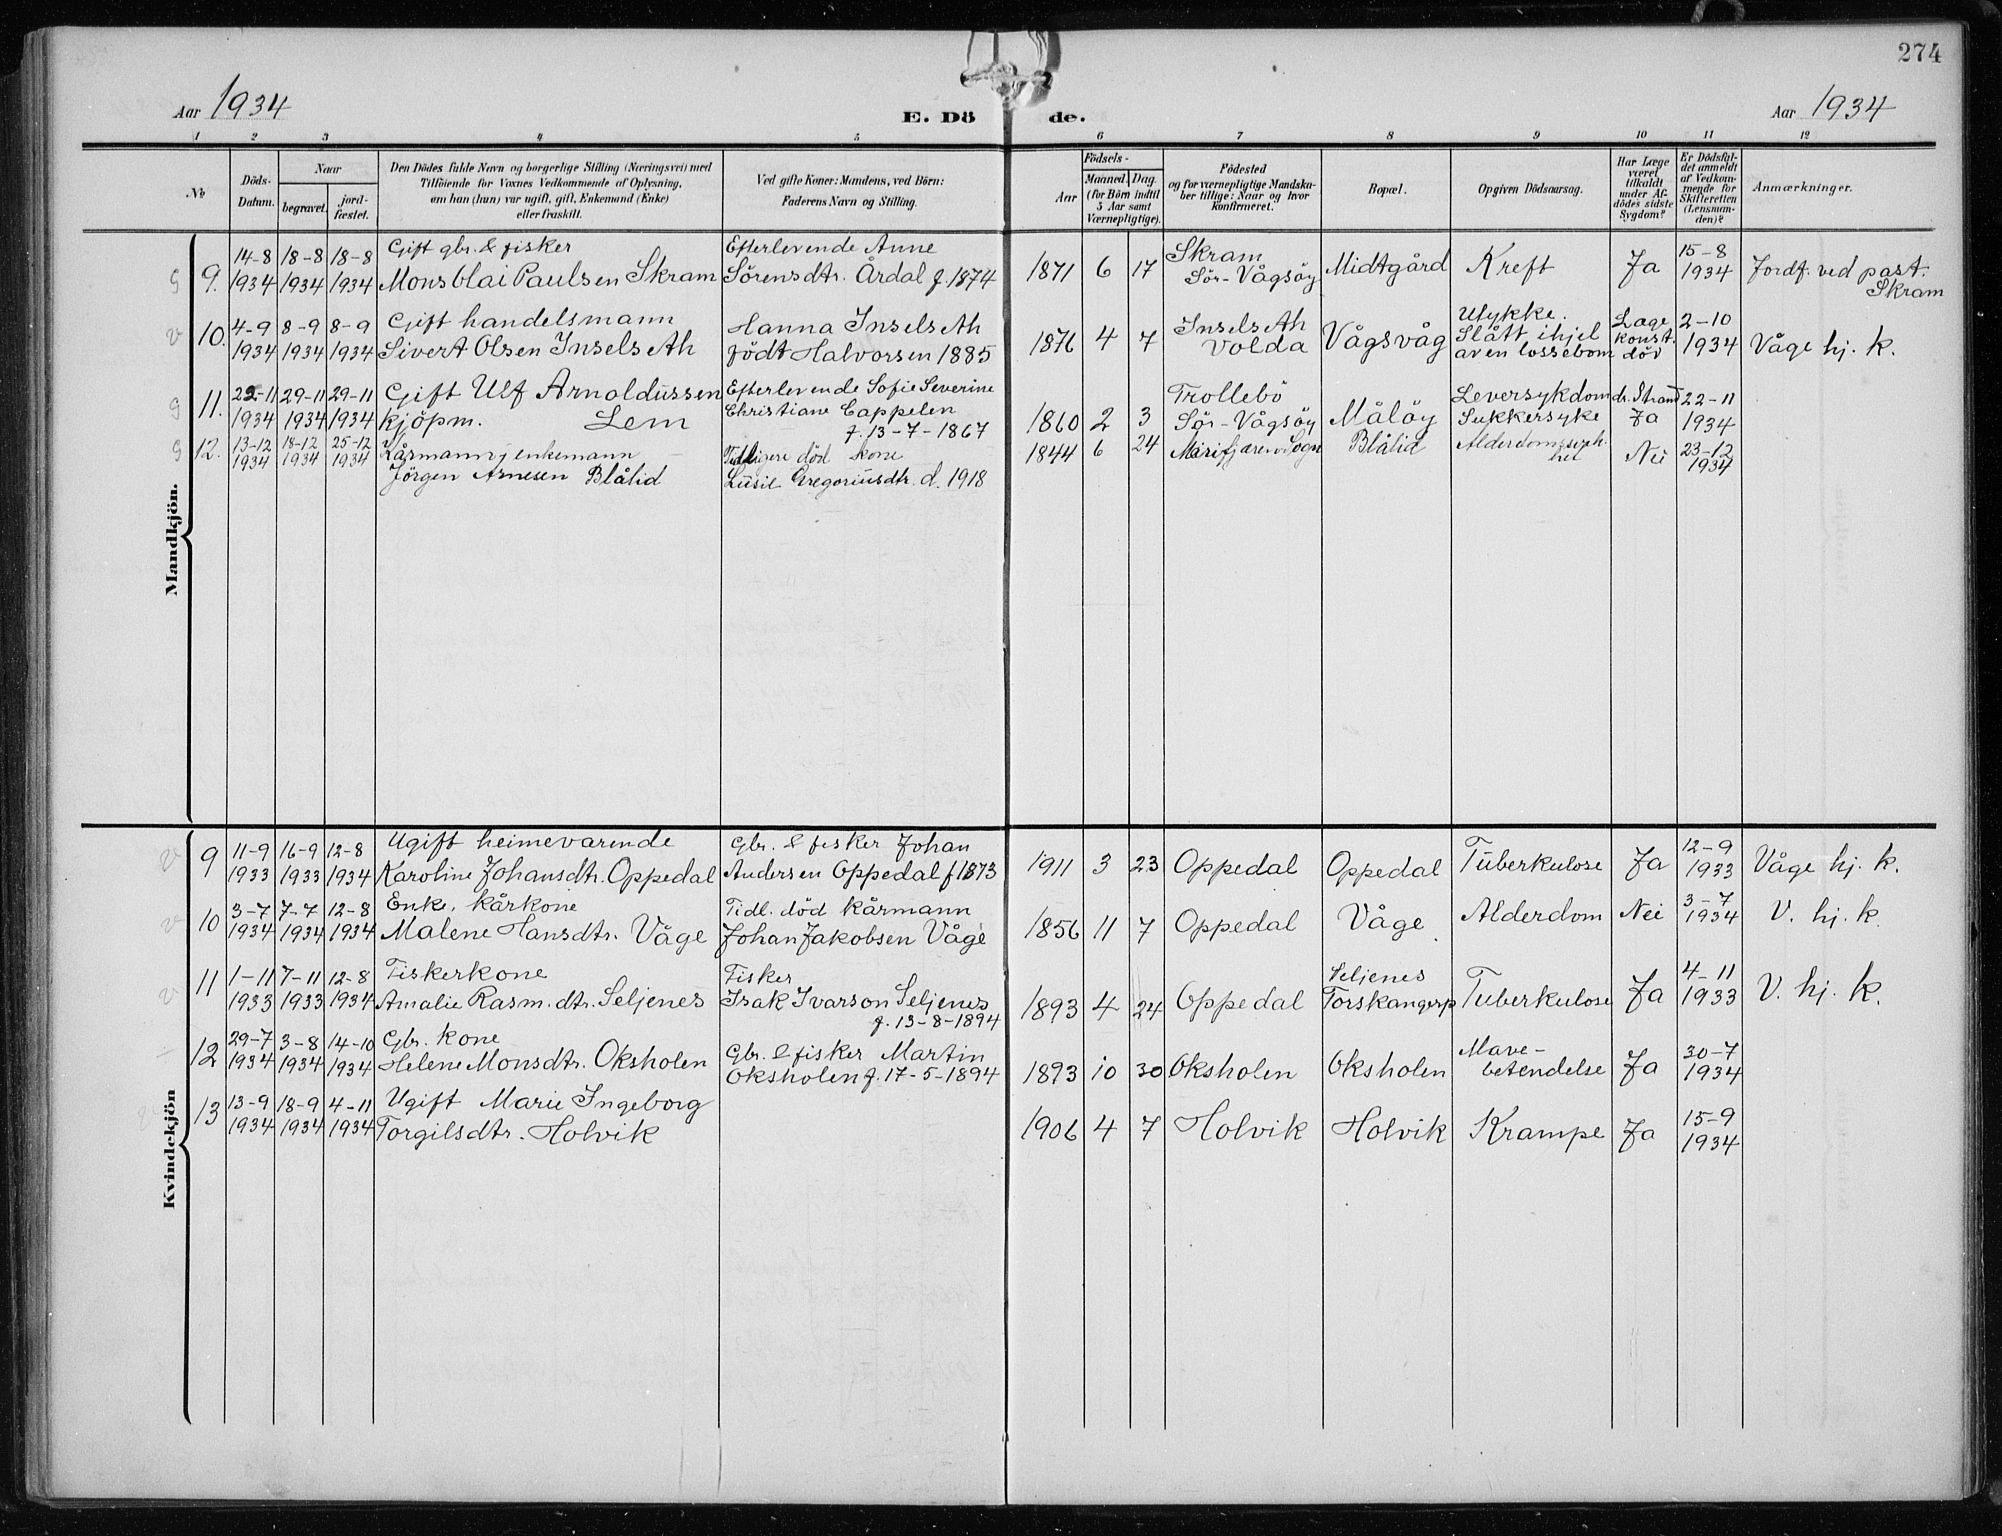 274
Aar 1934
E. Dö de.
Aar 1934
1 2 3 4 5 6 7 8 9 10 11 12
No
Döds-
Datum.
Naar
begravet.
jord-
fæstet.
Den Dödes fulde Navn og borgerlige Stilling (Næringsvei) med
Tilföiende for Voxnes Vedkommende af Oplysning,
om han (hun) var ugift, gift, Enkemand (Enke)
eller fraskilt.
Ved gifte Koner: Mandens, ved Börn:
Faderens Navn og Stilling.
Födsels-
Aar
Maaned. Dag.
(for Börn indtil
5 Aar samt
Værnepligtige).
Födested
og for værnepligtige Mandska-
ber tillige: Naar og hvor
konfirmeret.
Bopæl.
Opgiven Dödsaarsag.
Har Læge
været
tilkaldt
under Af-
dödes sidste
Sygdom?
Er Dödsfal-
det anmeldt
af Vedkom-
mende for
Skifteretten
(Lensman-
den)?
Anmærkninger.
Mandkjön.
9. 14-8 1934 18-8 1934 18-8 1934 Gift gbr. & fisker
Mons Olai Paulsen Skram
Efterlevende Anne
Sörensdtr. Årdal f. 1874
1871 6 17 Skram
Sör-Vågsöy Midtgård Kreft Ja 15-8 1934 Jordf. ved past.
Skram
10. 4-9 1934 8-9 1934 8-9 1934 Gift handelsmann
Sivert Olsen Inselseth
Hanna Inselseth
födt Halvorsen 1885
1876 4 7 Inselseth
Volda Vågsvåg Ulykke.
Slått ihjel
av en lossebom
Læge
konst.
död
2-10 1934 Våge hj. k.
11. 22-11 1934 29-11 1934 29-11 1934 Gift Ulf Arnoldussen
kjöpm. Lem
Efterlevende Sofie Severine
Christiane Cappelen
f. 13-7-1867
1860 2 3 Trollebö
Sör-Vågsöy Målöy Leversykdom
Sukkersyke dr. Strand
Ja 22-11 1934
12. 13-12 1934 18-12 1934 25-12 1934 Kårmann, enkemann
Jörgen Arnesen Blålid
Tidligere död kone
Lusie Gregoriusdtr. d. 1918
1844 6 24 Marifjæren Sogn Blålid Nei 23-12 1934
Kvindekjön
9 11-9 1933 16-9 1933 12-8 1934 Ugift heimevarende
Karoline Johansdtr. Oppedal
Gbr. & fisker Johan
Andersen Oppedal f 1873
1911 3 23 Oppedal Oppedal Tuberkulose Ja 12-9 1933 Våge hj. k.
10 3-7 1934 7-7 1934 12-8 1934 Enke, kårkone
Malene Hansdtr. Våge
Tidl. död kårmann
Johan Jakobsen Våge
1856 11 7 Oppedal Våge Alderdom Nei 3-7 1934 V. hj. k.
11 1-11 1933 7-11 1933 12-8 1934 Fiskerkone
Amalie Rasm.dtr. Seljenes
Fisker
Isak Ivarson Seljenes
f. 13-8-1894
1893 4 24 Oppedal Seljenes
Torskangerp Tuberkulose Ja 4-11 1933 V. hj. k.
12 29-7 1934 3-8 1934 14-10 1934 Gbr. kone
Helene Monsdtr. Oksholen
Gbr. & fisker Martin
Oksholen f. 17-5-1894
1893 10 30 Oksholen Oksholen Mave-
betendelse Ja 30-7 1934
13 13-9 1934 18-9 1934 4-11 1934 Ugift Marie Ingeborg
Torgilsdtr. Holvik
1906 4 7 Holvik Holvik Krampe Ja 15-9 1934